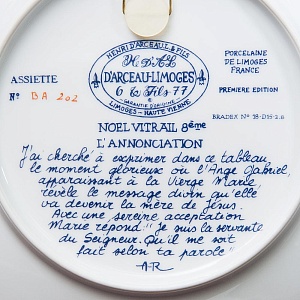 HENRI D'ARCEAU & FILS
H. D'A & L
D'ARCEAU-LIMOGES
G & Fils-77
GARANTIE D'ORIGINE
LIMOGES - HAUTE VIENNE
ASSIETTE
Nº BA 202
PORCELAINE
DE LIMOGES
FRANCE
PREMIERE EDITION
BRADEX Nº 18-D15-2.8
NOEL VITRAIL 8ème
L'ANNONCIATION
J'ai cherché à exprimer dans ce tableau,
le moment glorieux où l'Ange Gabriel,
apparaissant à la Vierge Marie,
révèle le message divin qu'elle
va devenir la mère de Jésus.
Avec une sereine acceptation
Marie répond: "Je suis la servante
du Seigneur. Qu'il me soit
fait selon ta parole"
AR